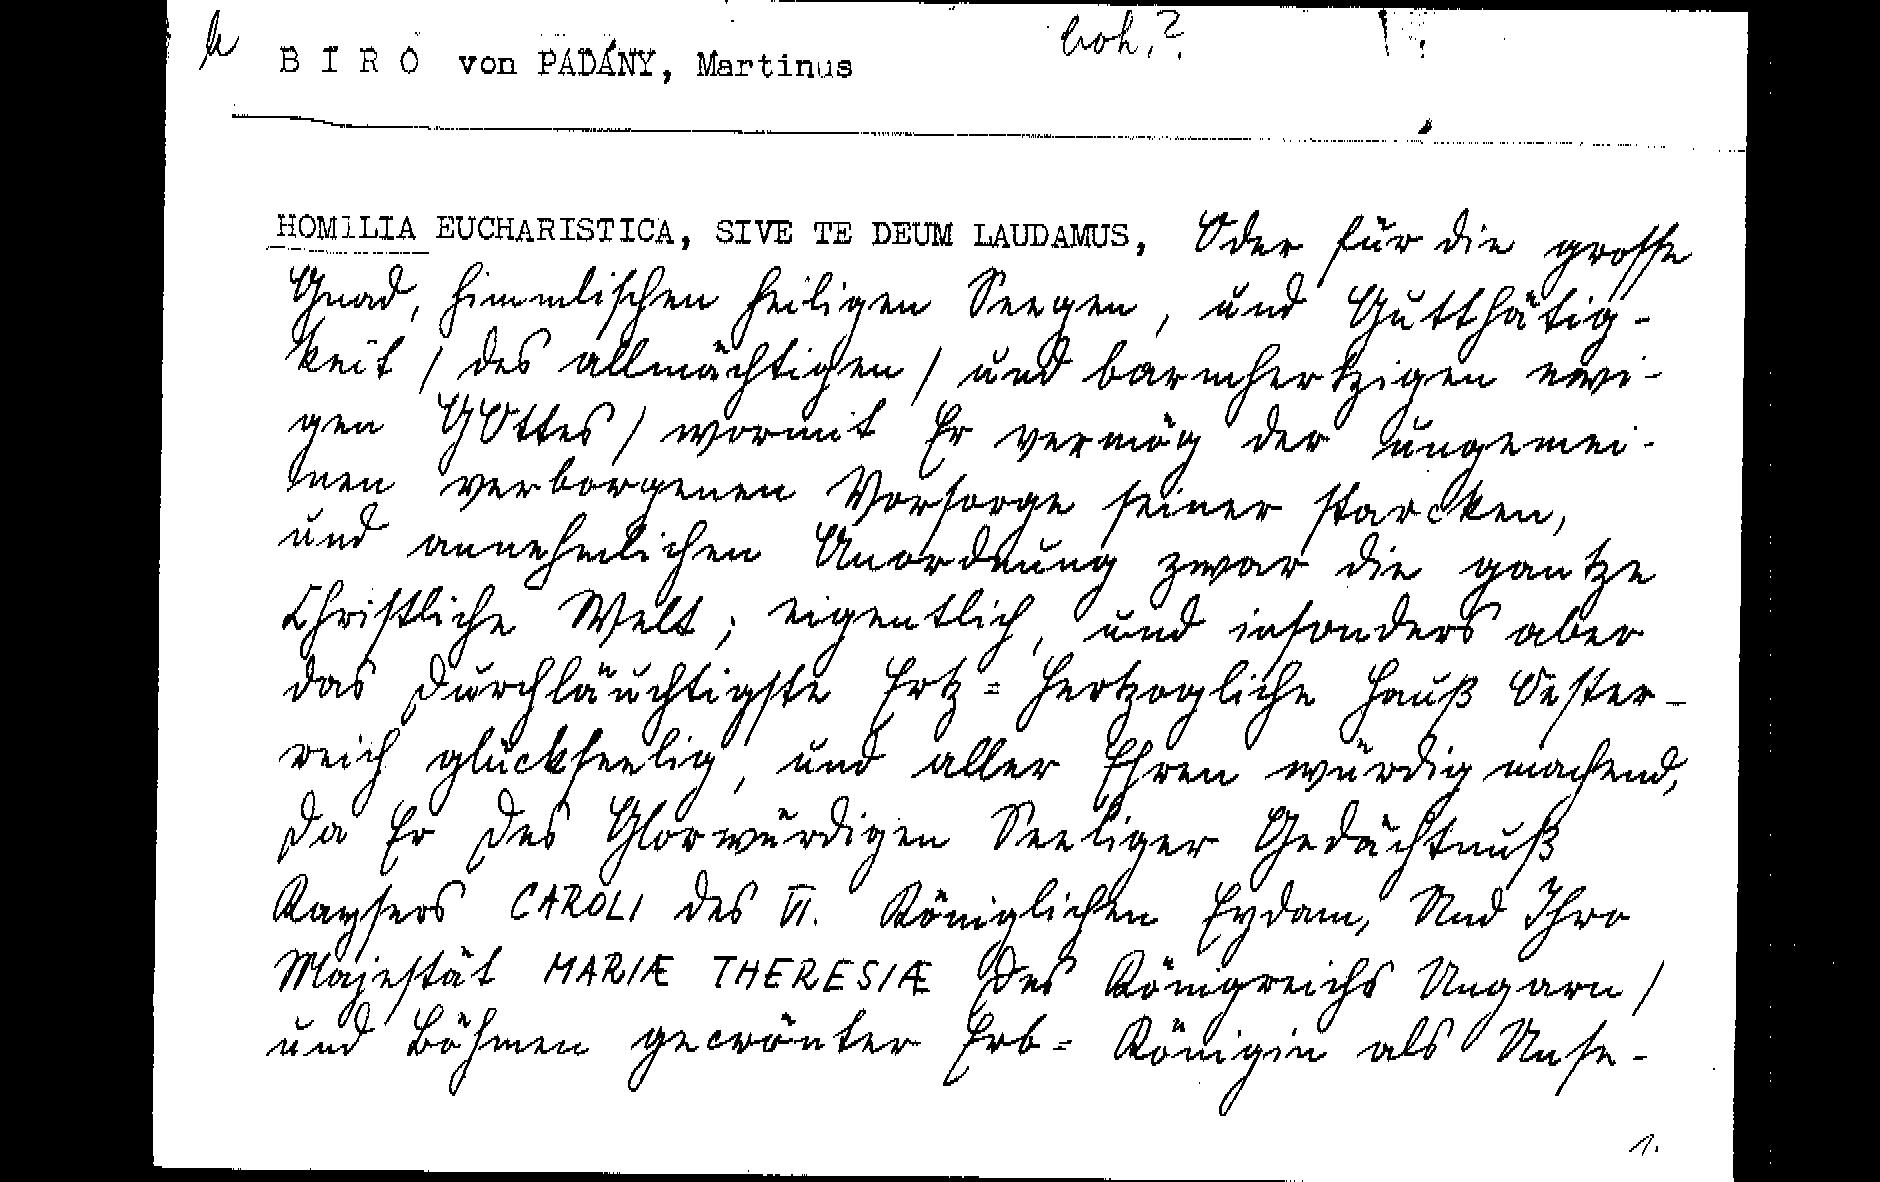 k
boh.?
B I R O von PADÁNY, Martinus
HOMILIA EUCHARISTICA, SIVE TE DEUM LAUDAMUS, Oder für die grosse
Gnad, himmlischen heiligen Seegen, und Gutthätig-
keit / des allmächtigen / und barmhertzigen ewi-
gen GOttes / wormit Er vermög der ungemei-
nen verborgenen Vorsorge seiner starcken,
und annehmlichen Anordnung zwar die gantze
Christliche Welt; eigentlich, und insonders aber
das Durchläuchtigste Ertz= Hertzogliche Hauß Oester-
reich glückseelig, und aller Ehren würdig machend,
Da Er Des Glorwürdigen Seeliger Gedächtnuß
Kaysers CAROLI des VI. Königlichen Eydam, Und Ihro
Majestät MARIÆ THERESIÆ Des Königreichs Ungarn /
und Böhmen gecrönter Erb= Königin als Unse-
1.